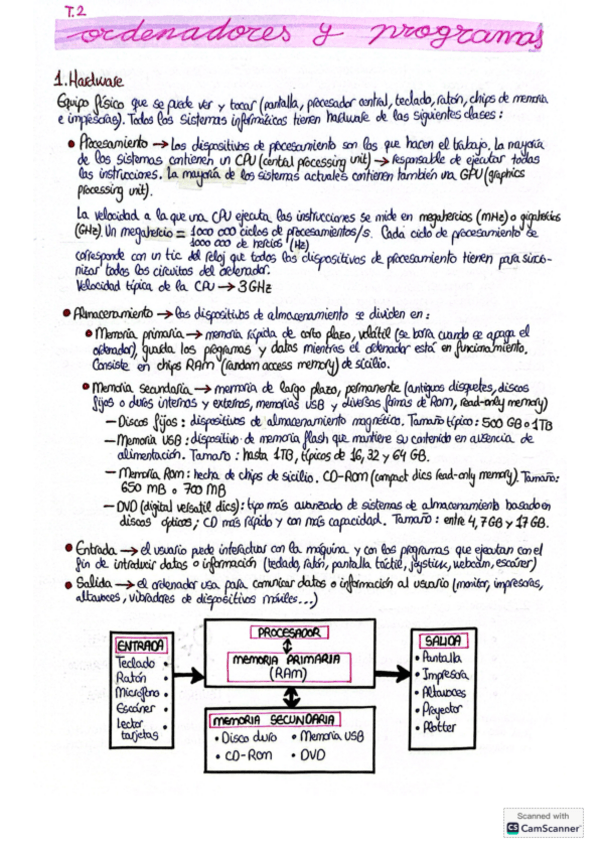 T.2
ordenadores y programas
1. Hardware
Equipo físico que se puede ver y tocar (pantalla, procesador central, teclado, ratón, chips de memoria
e impresoras). Todos los sistemas informáticos tienen hardware de las siguientes clases:
• Procesamiento → Los dispositivos de procesamiento son los que hacen el trabajo. La mayoría
de los sistemas contienen un CPU (central processing unit) → responsable de ejecutar todas
las instrucciones. La mayoría de los sistemas actuales contienen también una GPU (graphics
processing unit).
La velocidad a la que una CPU ejecuta las instrucciones se mide en megahercios (MHz) o gigahercios
(GHz). Un megahercio = 1000 000 ciclos de procesamientos/s. Cada ciclo de procesamiento se
1000 000 de hercios (Hz)
corresponde con un tic del reloj que todos los dispositivos de procesamiento tienen para sincro-
nizar todos los circuitos del ordenador.
Velocidad típica de la CPU → 3GHz
• Almacenamiento → los dispositivos de almacenamiento se dividen en:
• Memoria primaria → memoria rápida de corto plazo, volátil (se borra cuando se apaga el
ordenador), guarda los programas y datos mientras el ordenador está en funcionamiento.
Consiste en chips RAM (random access memory) de silicio.
• Memoria secundaria → memoria de largo plazo, permanente (antiguos disquetes, discos
fijos o duros internos y externos, memorias USB y diversas formas de Rom, read-only memory)
— Discos fijos: dispositivos de almacenamiento magnético. Tamaño típico: 500 GB o 1TB
— Memoria USB: dispositivo de memoria flash que mantiene su contenido en ausencia de
alimentación. Tamaño: hasta 1TB, típicos de 16, 32 y 64 GB.
— Memoria Rom: hecha de chips de silicio. CD-Rom (compact dics read-only memory). Tamaño:
650 MB o 700 MB
— DVD (digital versatil dics): tipo más avanzado de sistemas de almacenamiento basado en
discos ópticos; CD más rápido y con más capacidad. Tamaño: entre 4,7GB y 17GB.
• Entrada → el usuario puede interactuar con la máquina y con los programas que ejecutan con el
fin de introducir datos o información (teclado, ratón, pantalla táctil, joystick, webcam, escáner)
• Salida → el ordenador usa para comunicar datos o información al usuario (monitor, impresoras,
altavoces, vibradores de dispositivos móviles...)
ENTRADA
Teclado •
Ratón •
Micrófono •
Escáner •
Lector •
tarjetas
PROCESADOR
MEMORIA PRIMARIA
(RAM)
MEMORIA SECUNDARIA
• Disco duro • Memoria USB
• CD-Rom • DVD
SALIDA
• Pantalla
• Impresora
• Altavoces
• Proyector
• Plotter
Scanned with
CS CamScanner